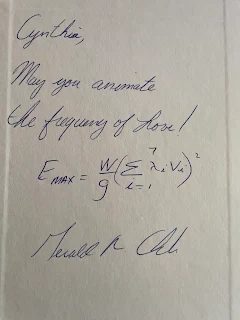 Cynthia,
May you animate
the frequency of Love!
E MAX = W/g (Σ i=1 7 λi Vi)²